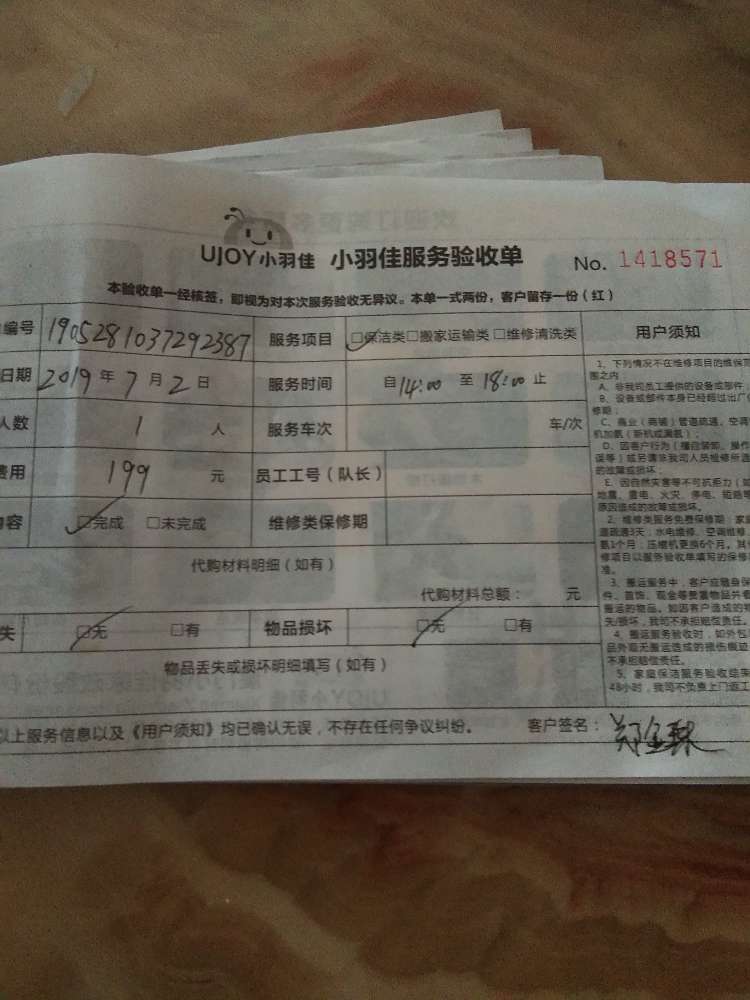 UJOY小羽佳 小羽佳服务验收单 No. 1418571
本验收单一经核签，即视为对本次服务验收无异议。本单一式两份，客户留存一份（红）
编号 1905281037292387 服务项目 □保洁类□搬家运输类□维修清洗类 用户须知
日期 2019年7月2日 服务时间 自14:00至18:00止
人数 1 人 服务车次 车/次
费用 199 元 员工工号（队长）
内容 □完成 □未完成 维修类保修期
代购材料明细（如有）
代购材料总额： 元
失 □无 □有 物品损坏 □无 □有
物品丢失或损坏明细填写（如有）
以上服务信息以及《用户须知》均已确认无误，不存在任何争议纠纷。 客户签名：
1、下列情况不在维修项目的维保范
围之内
A、非我司员工提供的设备或部件
B、设备或部件本身已经超过出厂保
修期；
C、商业（商铺）管道疏通、空调
机加氨（新机或漏氨）；
D、因客户行为（擅自装卸、操作
误等）或另请非我司人员维修所造
的故障或损坏；
E、因自然灾害等不可抗拒力（如
地震、雷电、火灾、停电、短路等
原因造成的故障或损坏。
2、维修类服务免费保修期：家庭
道疏通3天；水电维修、空调维修、
氨1个月；压缩机更换6个月。其
修项目以服务验收单填写的保修
准。
3、搬运服务中，客户应随身保
件、首饰、现金等贵重物品并看
搬运的物品。如因客户造成的物
失/损坏，我司不承担赔偿责任。
4、搬运服务验收时，如外包
品外观无搬运造成的损伤痕迹
不承担赔偿责任。
5、家庭保洁服务验收结束
48小时，我司不负责上门返工